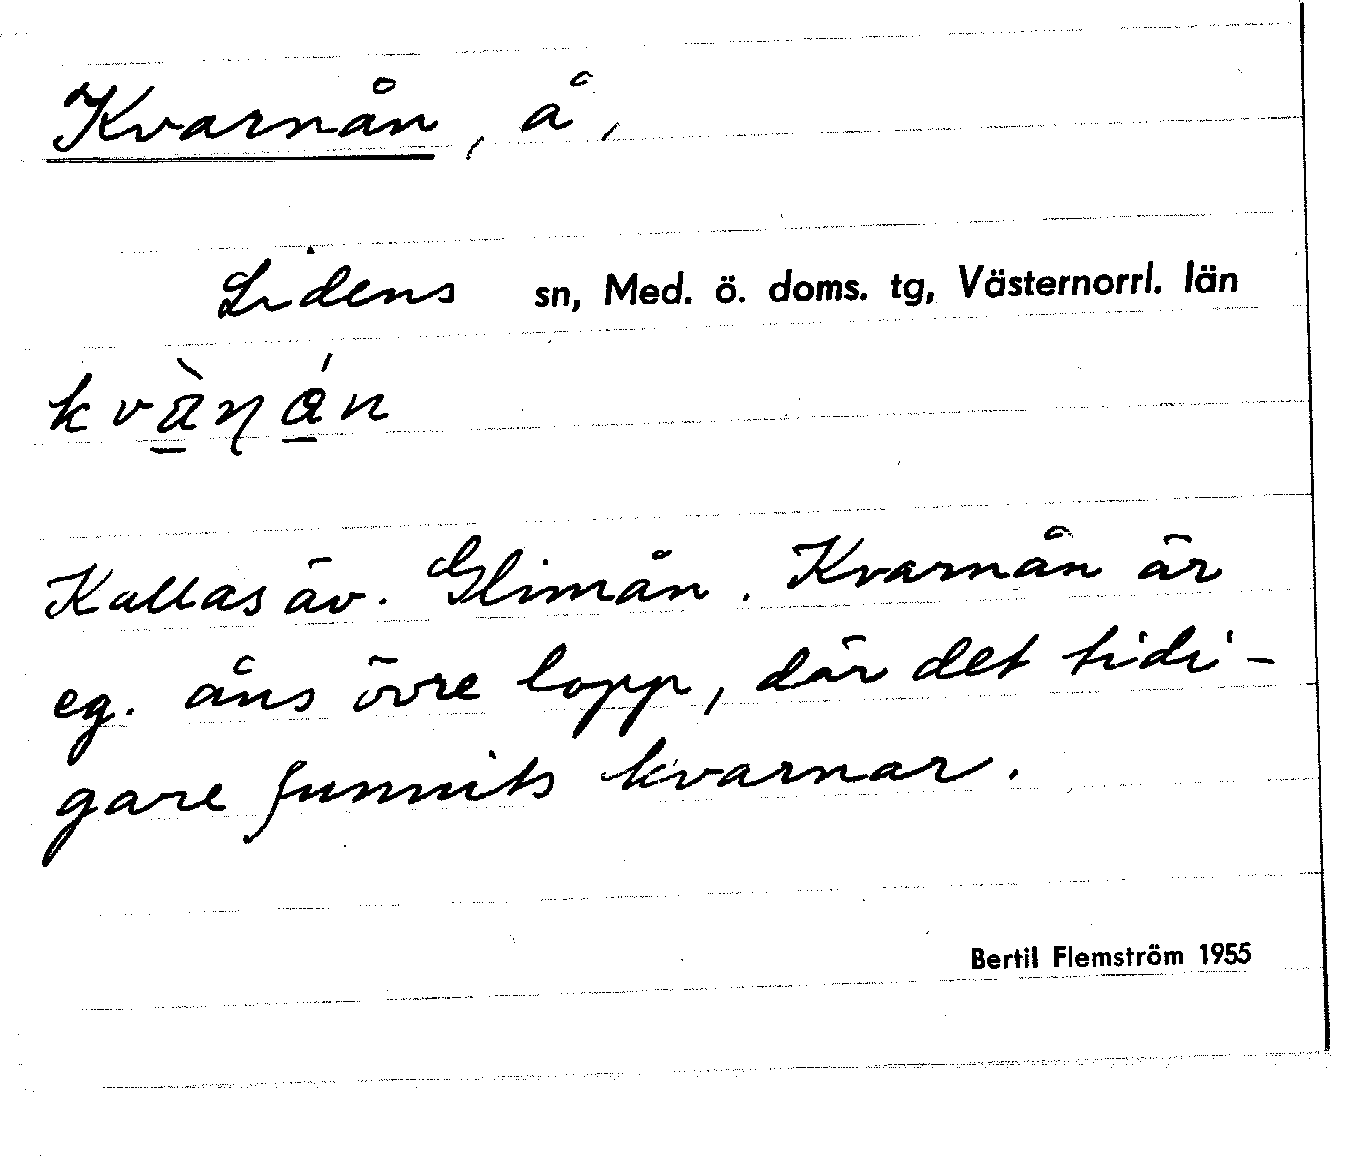 Kvarnån, å,
Lidens sn, Med. ö. doms. tg, Västernorrl. län
kvā̱̀ɳá̱n
Kallas äv. Glimån. Kvarnån är
eg. åns övre lopp, där det tidi-
gare funnits kvarnar.
Bertil Flemström 1955